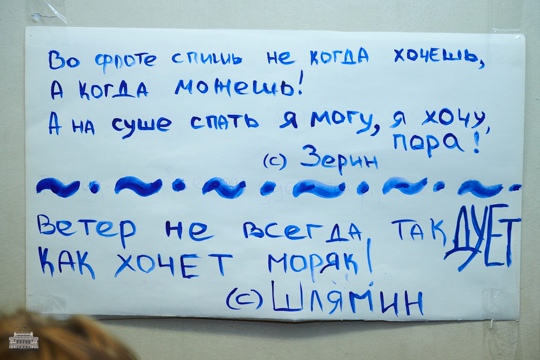 Во флоте спишь не когда хочешь,
А когда можешь!
А на суше спать я могу, я хочу,
пора!
(с) Зерин
Ветер не всегда, так ДУЕТ
как хочет моряк!
(с) Шлямин